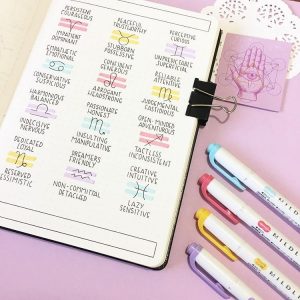 PERSISTENT
COURAGEOUS
IMPATIENT
DOMINANT
EMPATHETIC
EMOTIONAL
CONSERVATIVE
SUSPICIOUS
HARMONIOUS
BALANCED
INDECISIVE
NERVOUS
DEDICATED
LOYAL
RESERVED
PESSIMISTIC
PEACEFUL
TRUSTWORTHY
STUBBORN
POSSESSIVE
CONFIDENT
GENEROUS
ARROGANT
HEADSTRONG
PASSIONATE
HONEST
INSULTING
MANIPULATING
DREAMERS
FRIENDLY
NON-COMMITAL
DETACHED
PERCEPTIVE
CURIOUS
UNPREDICTABLE
SUPERFICIAL
RELIABLE
ATTENTIVE
JUDGEMENTAL
FASTIDIOUS
OPEN-MINDED
ADVENTUROUS
TACTLESS
INCONSISTENT
CREATIVE
INTUITIVE
LAZY
SENSITIVE
MILDL
MILDL